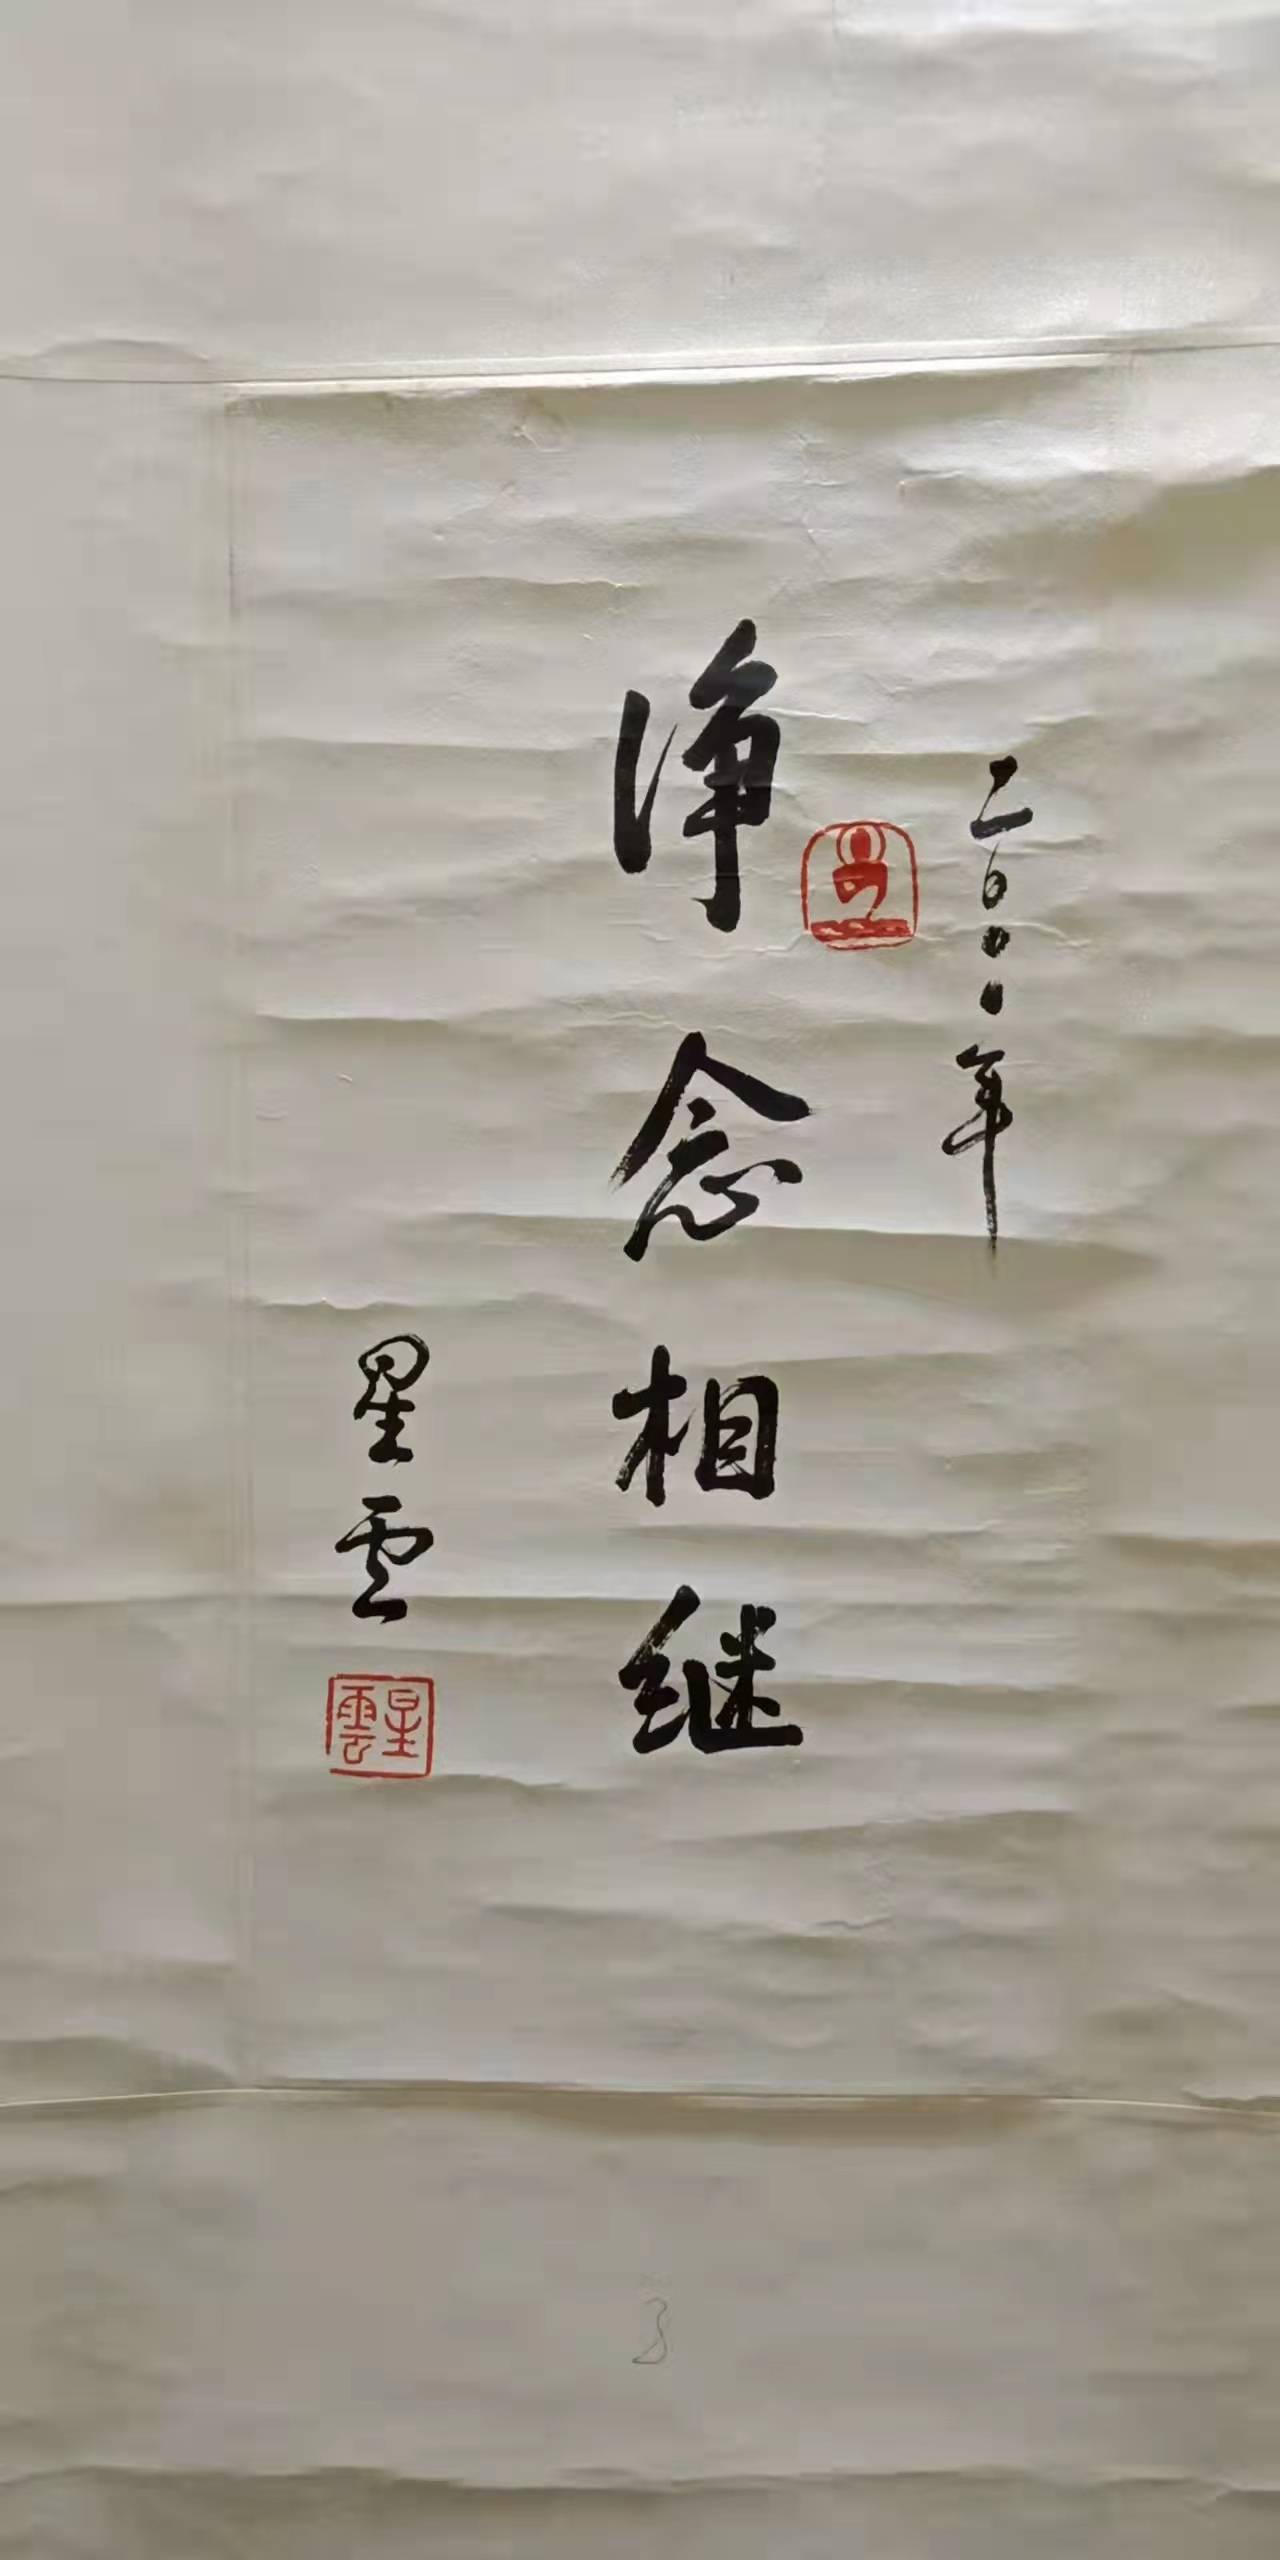 二〇〇〇年
净念相继
星云
星雲
3